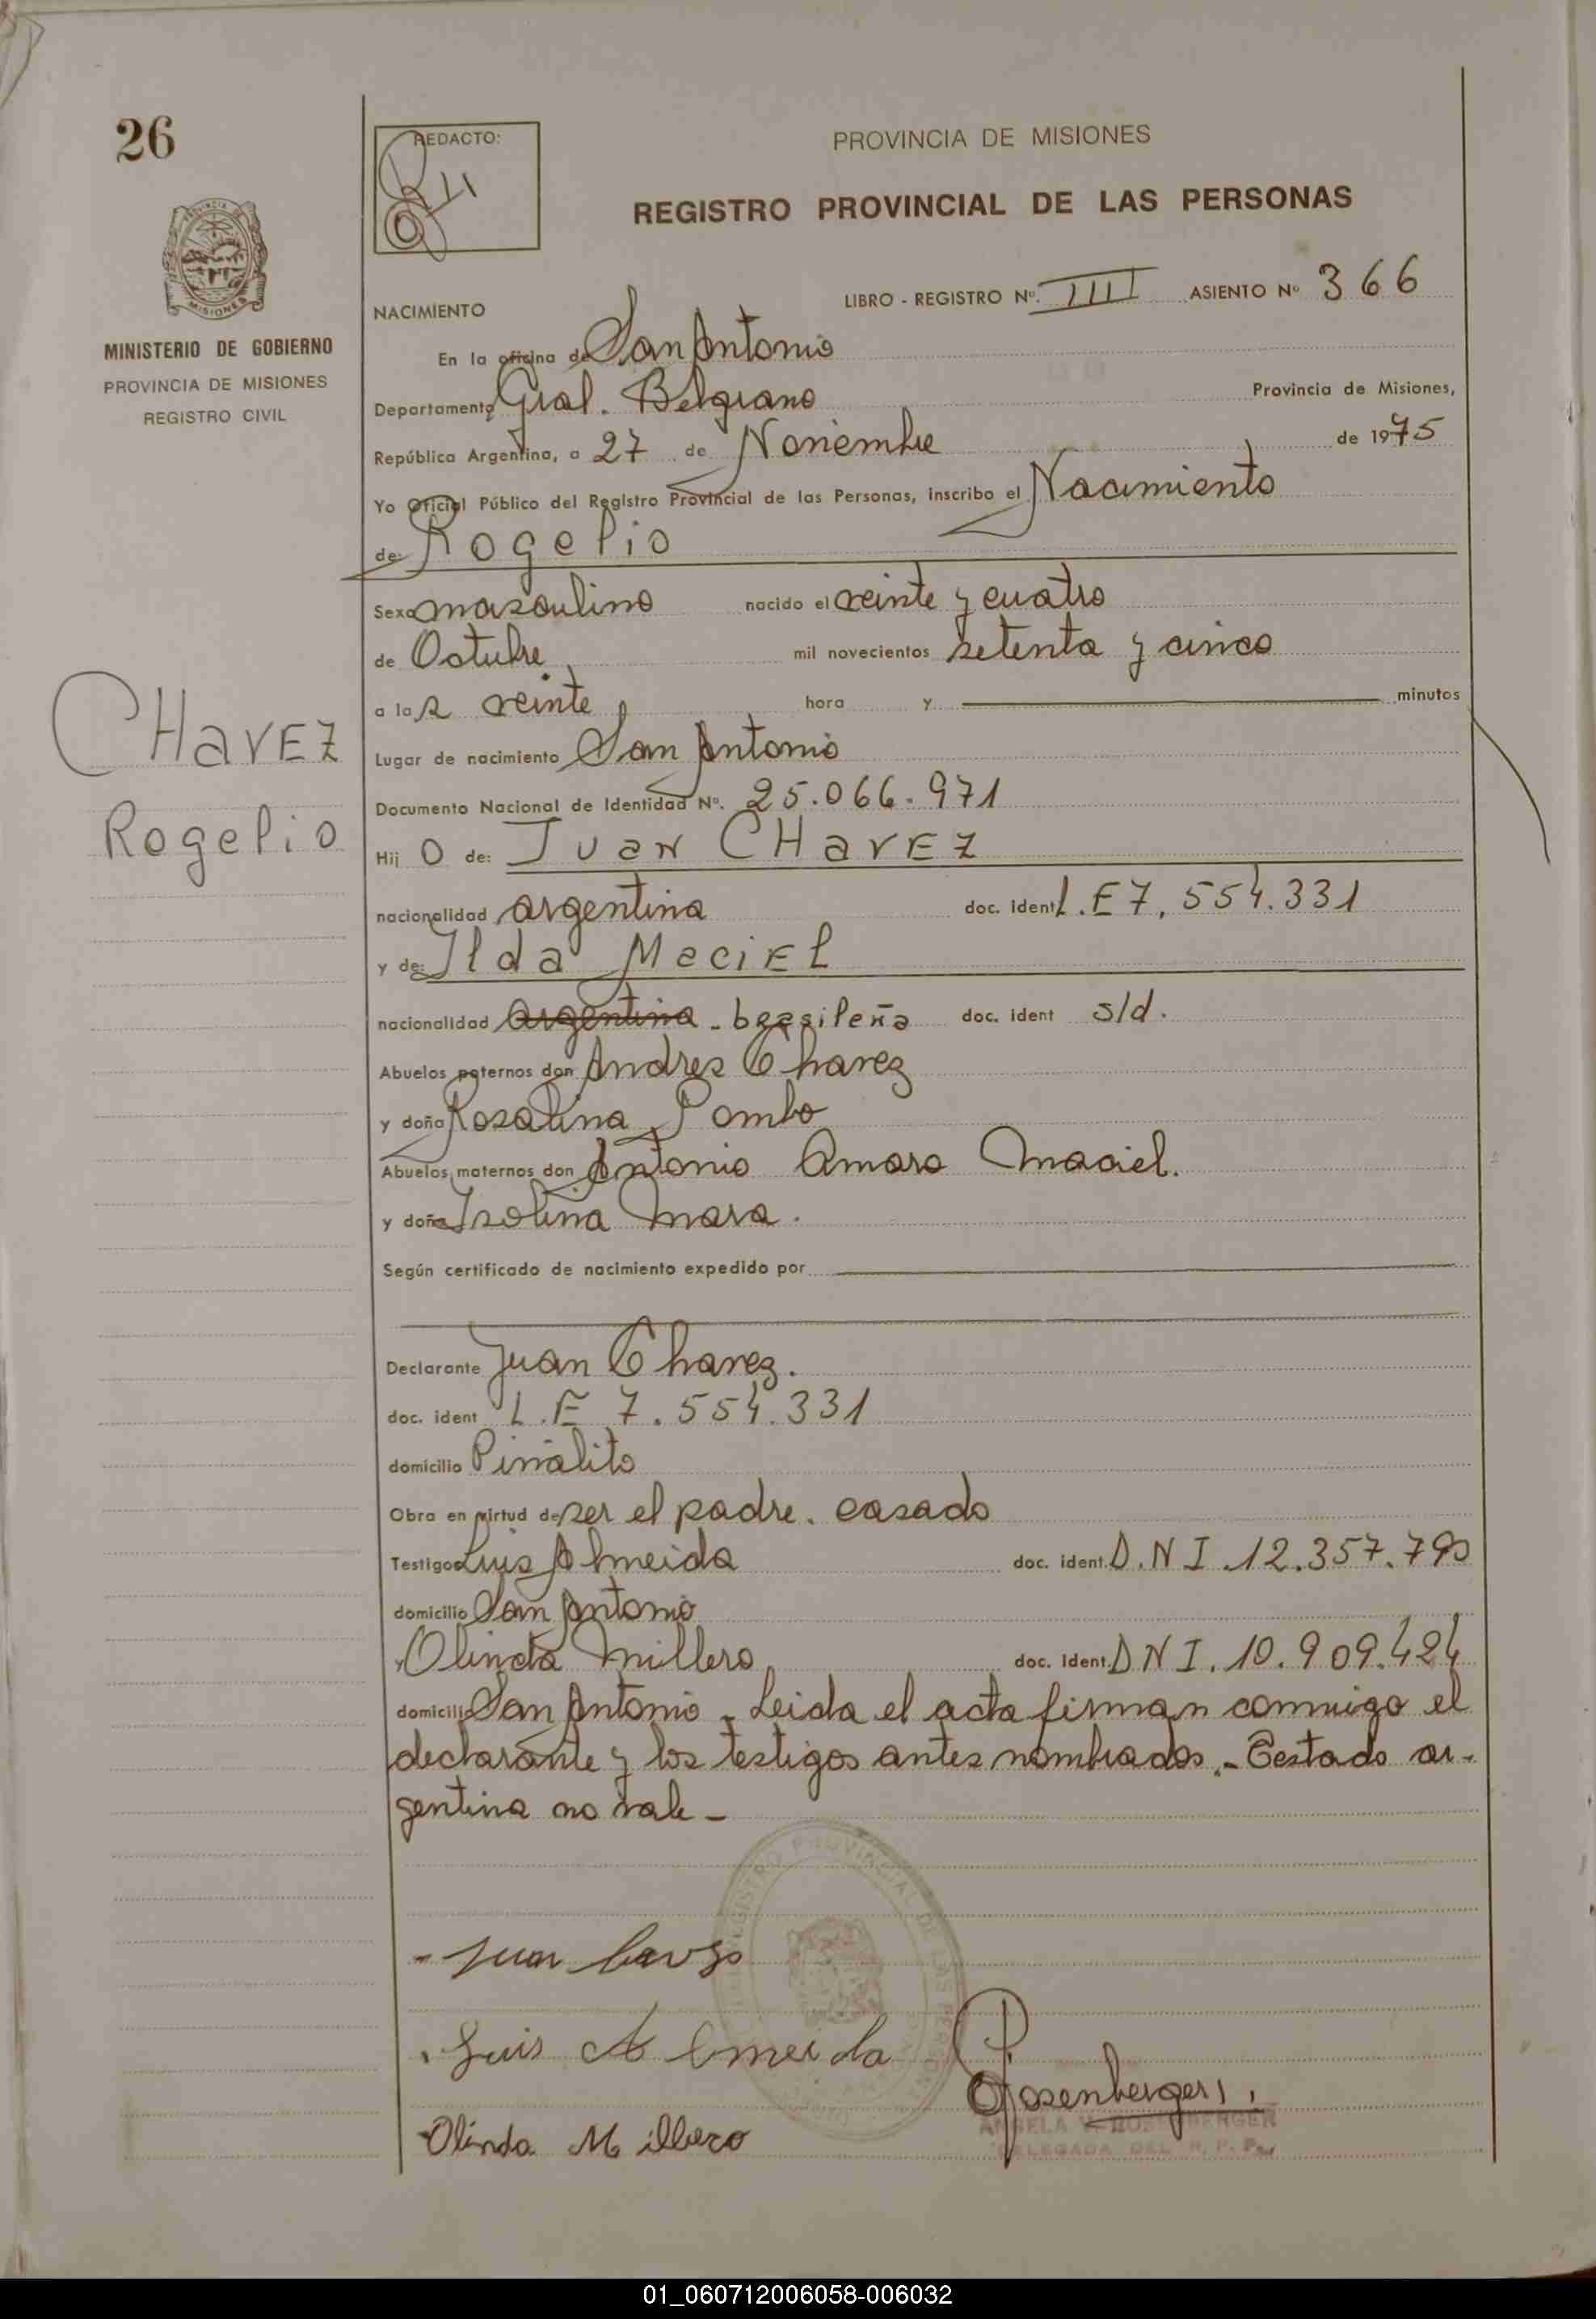 26
REDACTO:
PROVINCIA DE MISIONES
REGISTRO PROVINCIAL DE LAS PERSONAS
MINISTERIO DE GOBIERNO
PROVINCIA DE MISIONES
REGISTRO CIVIL
NACIMIENTO LIBRO - REGISTRO Nº. III ASIENTO Nº 366
En la oficina de San Antonio
Departamento Gral. Belgrano Provincia de Misiones,
República Argentina, a 27 de Noviembre de 1975
Yo Oficial Público del Registro Provincial de las Personas, inscribo el Nacimiento
de: Rogelio
Sexo masculino nacido el veinte y cuatro
de Octubre mil novecientos setenta y cinco
a las veinte hora y minutos
CHavEZ
Rogelio
Lugar de nacimiento San Antonio
Documento Nacional de Identidad Nº. 25.066.971
Hij O de: Juan CHavEZ
nacionalidad argentina doc. ident L.E 7.554.331
y de: Ilda MaciEl
nacionalidad argentina - brasileña doc. ident s/d.
Abuelos paternos don Andres Chavez
y doña Rosalina Pombo
Abuelos maternos don Antonio Amaro Maciel.
y doña Isolina Mara.
Según certificado de nacimiento expedido por
Declarante Juan Chavez.
doc. ident L.E 7.554.331
domicilio Piñalito
Obra en virtud de ser el padre. casado
Testigos Luis Almeida doc. ident. D.N I .12.357.790
domicilio San Antonio
y Olinda Millero doc. ident. D N I. 10.909.424
domicilio San Antonio - Leida el acta firman conmigo el
declarante y los testigos antes nombrados.- Testado ar-
gentina no vale -
REGISTRO PROVINCIAL DE LAS PERSONAS
- Juan
Luis Almeida
Rosenberger
ANGELA V. ROSENBERGER
DELEGADA DEL R. P. P.
Olinda Millero
01_060712006058-006032